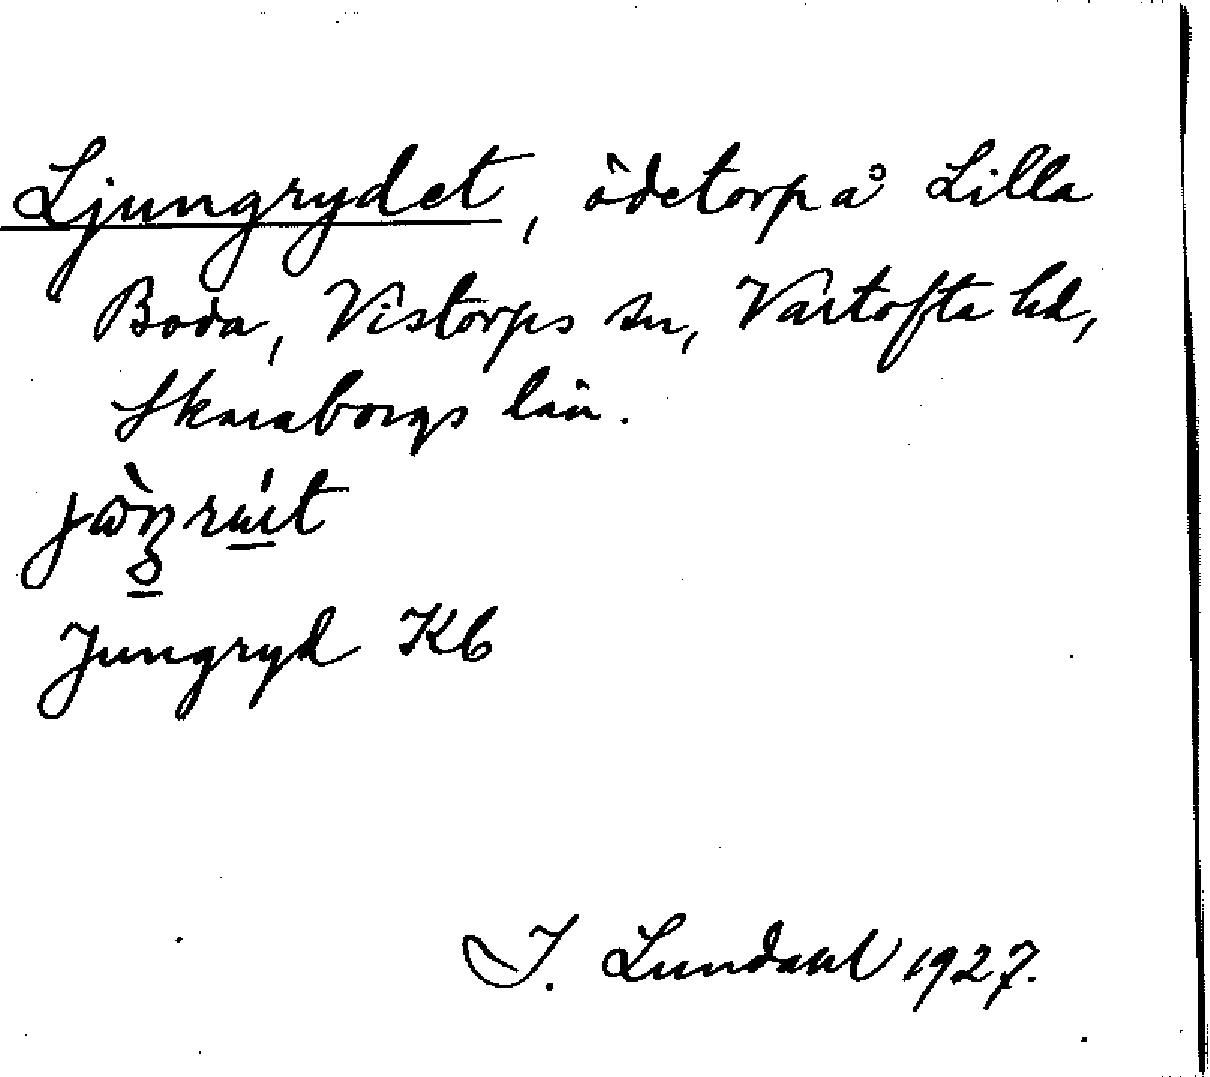 Ljungrydet, ödetorp å Lilla
Boda, Vistorps sn, Vartofta hd,
Skaraborgs län.
Jungryd Kb
I. Lundahl 1927.